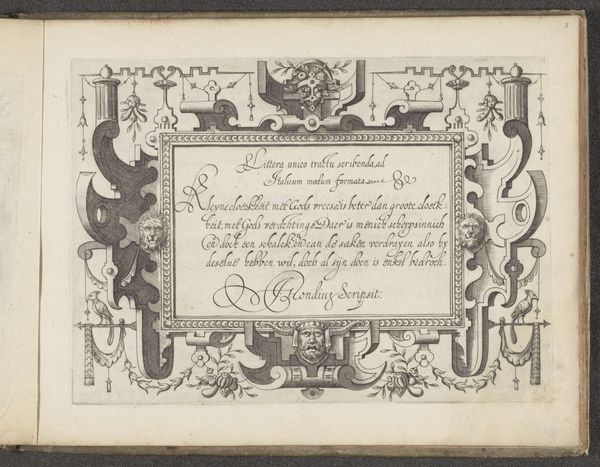 Littera unico tractu scribenda, ad
Italicum modum formata
Cleyne cloeckheit met Gods vreese is beter dan groote cloeck-
heit met Gods verachtinge. Daer is menich scherpsinnich
en doch een schalck en can de saken verdrayen also hy
deselve hebben wil, doch al sijn doen is enkel bedroch.
Hondius Scripsit.